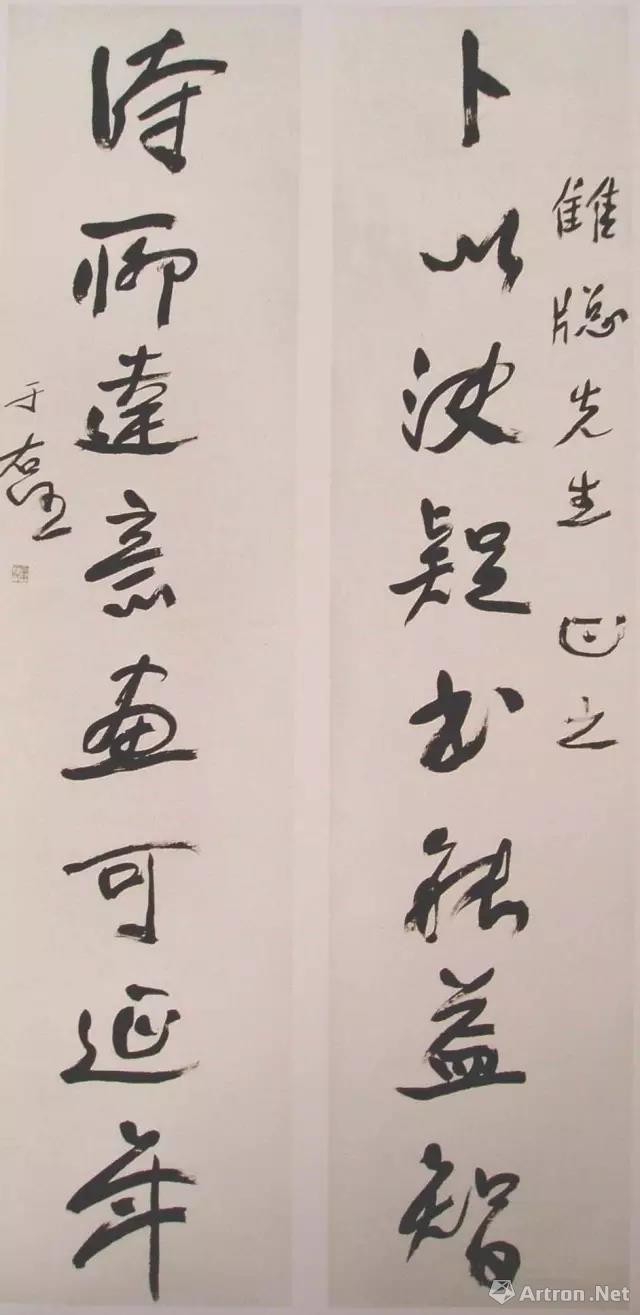 先生正之
卜以決疑書能益智
詩聊達意畫可延年
于右任
Artron.Net